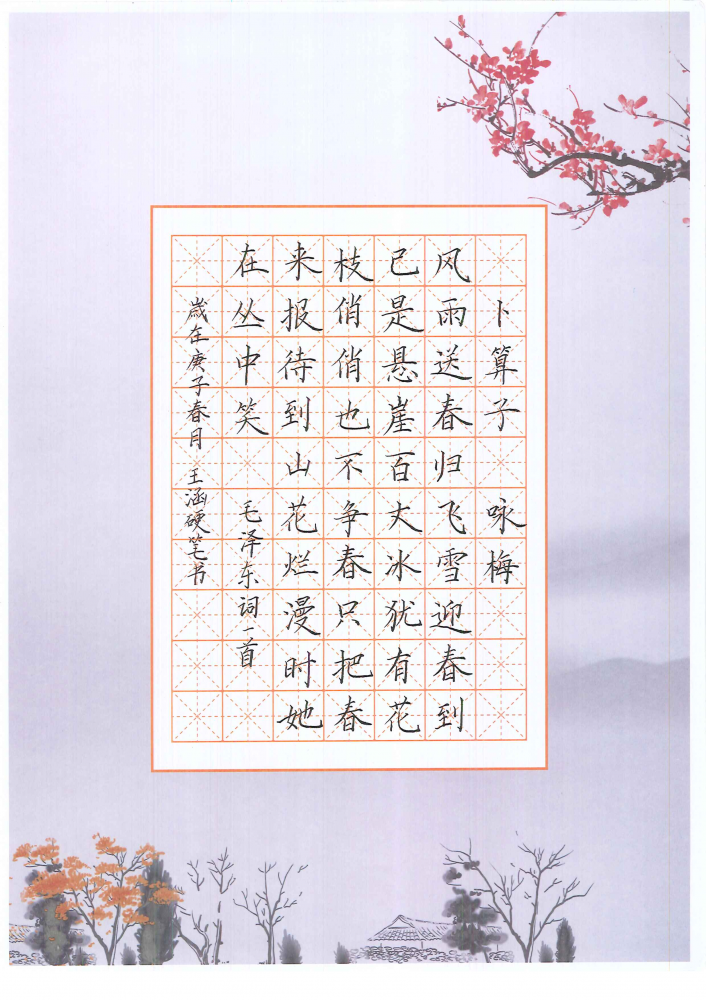 卜算子 咏梅
风雨送春归飞雪迎春到
已是悬崖百丈冰犹有花
枝俏俏也不争春只把春
来报待到山花烂漫时她
在丛中笑 毛泽东词一首
歲在庚子春月 王涵硬笔书